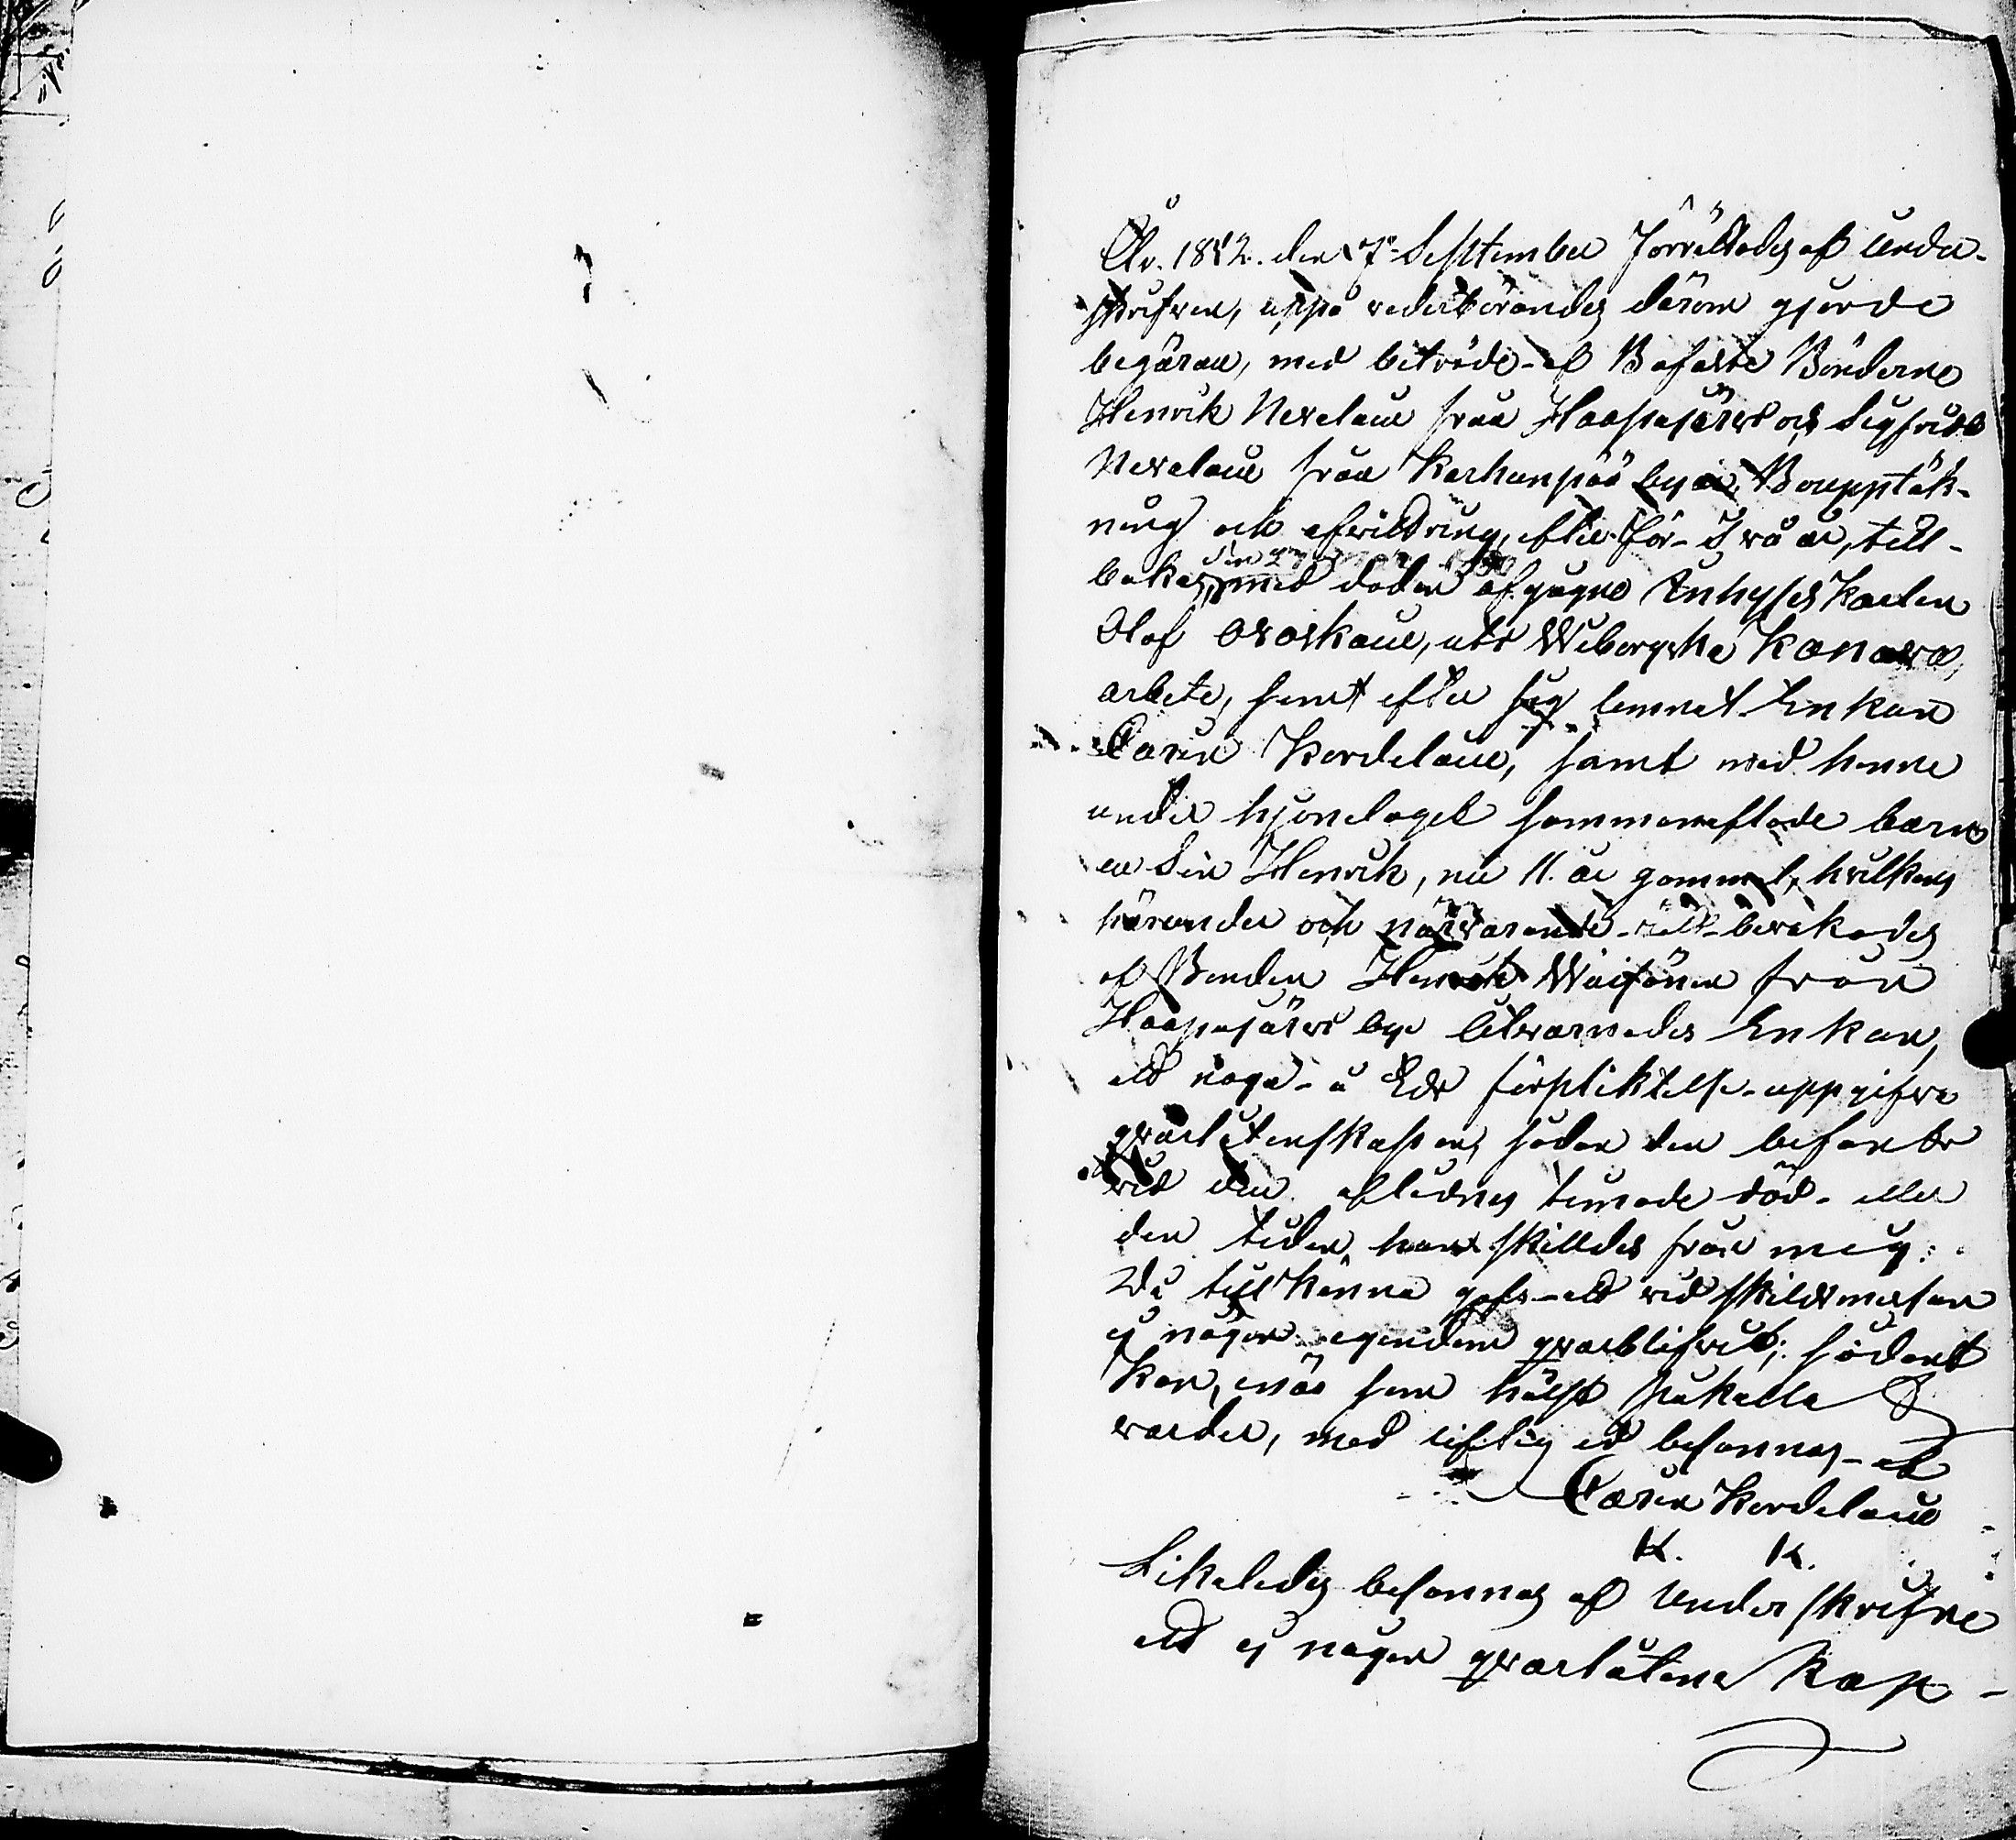 År 1842. den 7de September förrättades af under-
skrifven, uppå vederbörandes därom gjorde
begäran, med biträde af Bofaste Bönderne
Henrik Nevelain från Haapajärvi och Sigfrid
Nevelain från Karhunpää by Boupptäk-
ning och afvittring, efter för Två år, till-
bakas, med döden afgågne Inhyses Karlen
Olof Ovaskain, vid Wiborgska Kanava
arbete, samt efter sig lemnat Enkan
Carin Kordelain, samt med henne
under hjonelaget sammanaflade barn
en Sån Henrik, nu 11. år gammal, hvilkens
härunder och närvarande rätt bevakades
af Bonden Henrik Väisänen från
Haapajärvi by Åtvarnades Enkan,
att noga å Eds förpliktelse uppgifva
qvarlåtenskapen, sådan den befants
vid den aflidnes timade död eller
den tiden, han skilldes från mig:
Då tillkänna gafs att vid skildsmessan
ej någon egendom qvarblifvit; sådant
kan, när som hälst påkalla
varder, med liflig ed besannas af
Carin Kordelain
K. K.
Likaledes besannas af Underskrifne
att ej någon qvarlåtens kap-